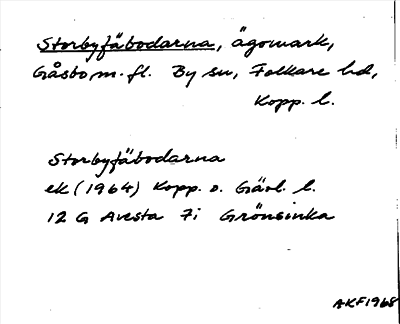 Storbyfäbodarna, ägomark,
Gåsbo, m. fl. By sn, Folkare hd,
Kopp. l.
Storbyfäbodarna
ek (1964) Kopp. o. Gävl. l.
12 G Avesta 7i Grönsinka
AKF1968